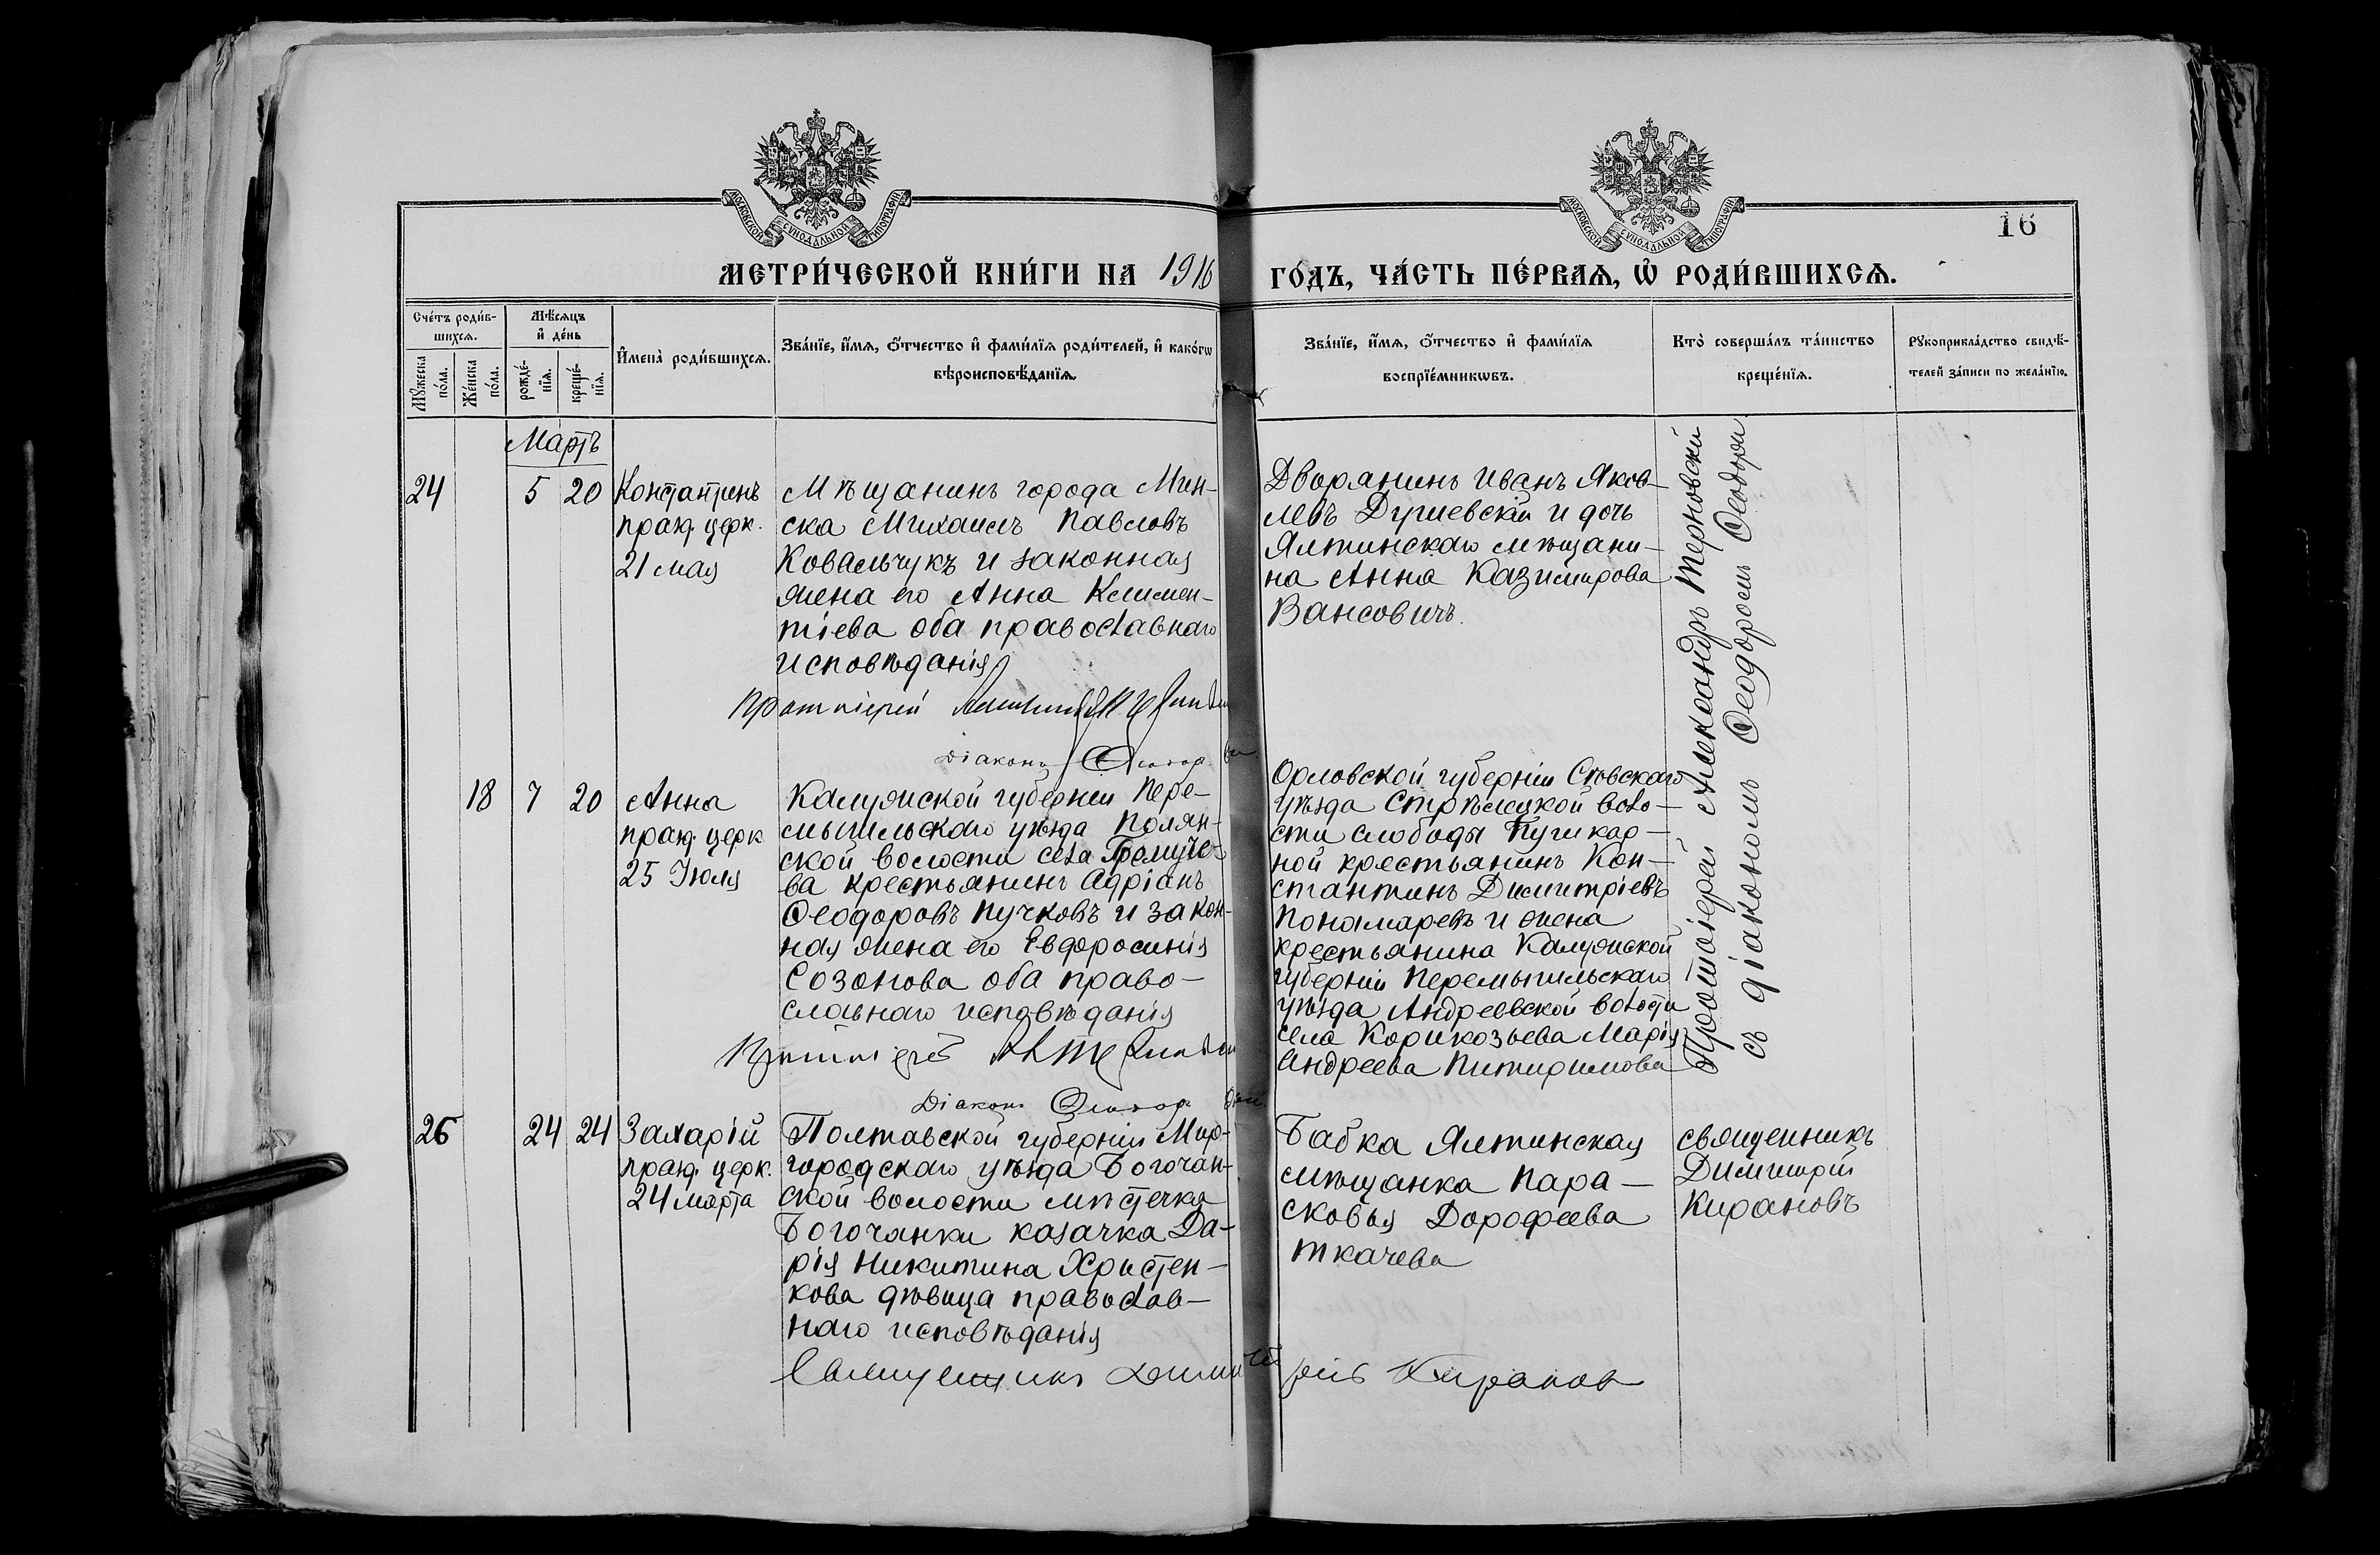 МОСКОВСКОЙ СѴНОДАЛЬНОЙ ТИПОГРАФІИ
МОСКОВСКОЙ СѴНОДАЛЬНОЙ ТИПОГРАФІИ
16
МЕТРИ́ЧЕСКОЙ КНИ́ГИ НА 1916 ГО́ДЪ, ЧА́СТЬ ПЕ́РВАѦ, Ѡ҆ РОДИ́ВШИХСѦ.
Сче́тъ роди́в-
шихсѧ.
Мꙋ́жеска
по́ла.
Же́нска
по́ла.
Мѣ́сѧцъ
и҆ де́нь
рожде́-
нїѧ.
креще́-
нїѧ.
И҆мена̀ роди́вшихсѧ.
Зва́нїе, и҆́мѧ, ѻ҆́тчество и҆ фами́лїѧ роди́телей, и҆ како́гѡ
вѣроисповѣ́данїѧ.
Зва́нїе, и҆́мѧ, ѻ҆́тчество и҆ фами́лїѧ
воспрїе́мникѡвъ.
Кто̀ соверша́лъ та́инство
креще́нїѧ.
Рꙋкоприкла́дство свидѣ́-
телей за́писи по жела́нїю.
Мартъ
24
5 20
Константинъ
празд. церк.
21 мая
Мѣщанинъ города Мин-
ска Михаилъ Павловъ
Ковальчукъ и законная
жена его Анна Климен-
тіева оба православнаго
исповѣданія
Протоіерей
Діаконъ
Дворянинъ Иванъ Яков-
левъ Душевскій и дочь
Ялтинскаго мѣщани-
на Анна Казимирова
Вансовичъ.
Протоіерей Александръ Терновскій
съ діакономъ Ѳеодоромъ
18
7 20
Анна
празд. церк
25 Іюля
Калужской губерніи Пере-
мышльскаго уѣзда Полян-
ской волости села Гремуче-
ва крестьянинъ Адріанъ
Ѳеодоровъ Пучковъ и закон-
ная жена его Евфросинія
Созонова оба право-
славнаго исповѣданія
Протоіерей
Діаконъ
Орловской губерніи Сѣвскаго
уѣзда Стрѣлецкой воло-
сти слободы Пушкар-
ной крестьянинъ Кон-
стантинъ Димитріевъ
Пономаревъ и жена
крестьянина Калужской
губерніи Перемышльскаго
уѣзда Андреевской волости
села Корикозьева Марія
Андреева Питиримова
25
24 24
Захарій
празд. церк.
24 марта
Полтавской губерніи Мир-
городскаго уѣзда Богочан-
ской волости мѣстечка
Богочанки казачка Да-
рія Никитина Христен-
кова дѣвица православ-
наго исповѣданія
Священникъ Димитрій Кирановъ
Бабка Ялтинская
мѣщанка Пара-
сковья Дорофеева
Ткачева
священникъ
Димитрій
Кирановъ